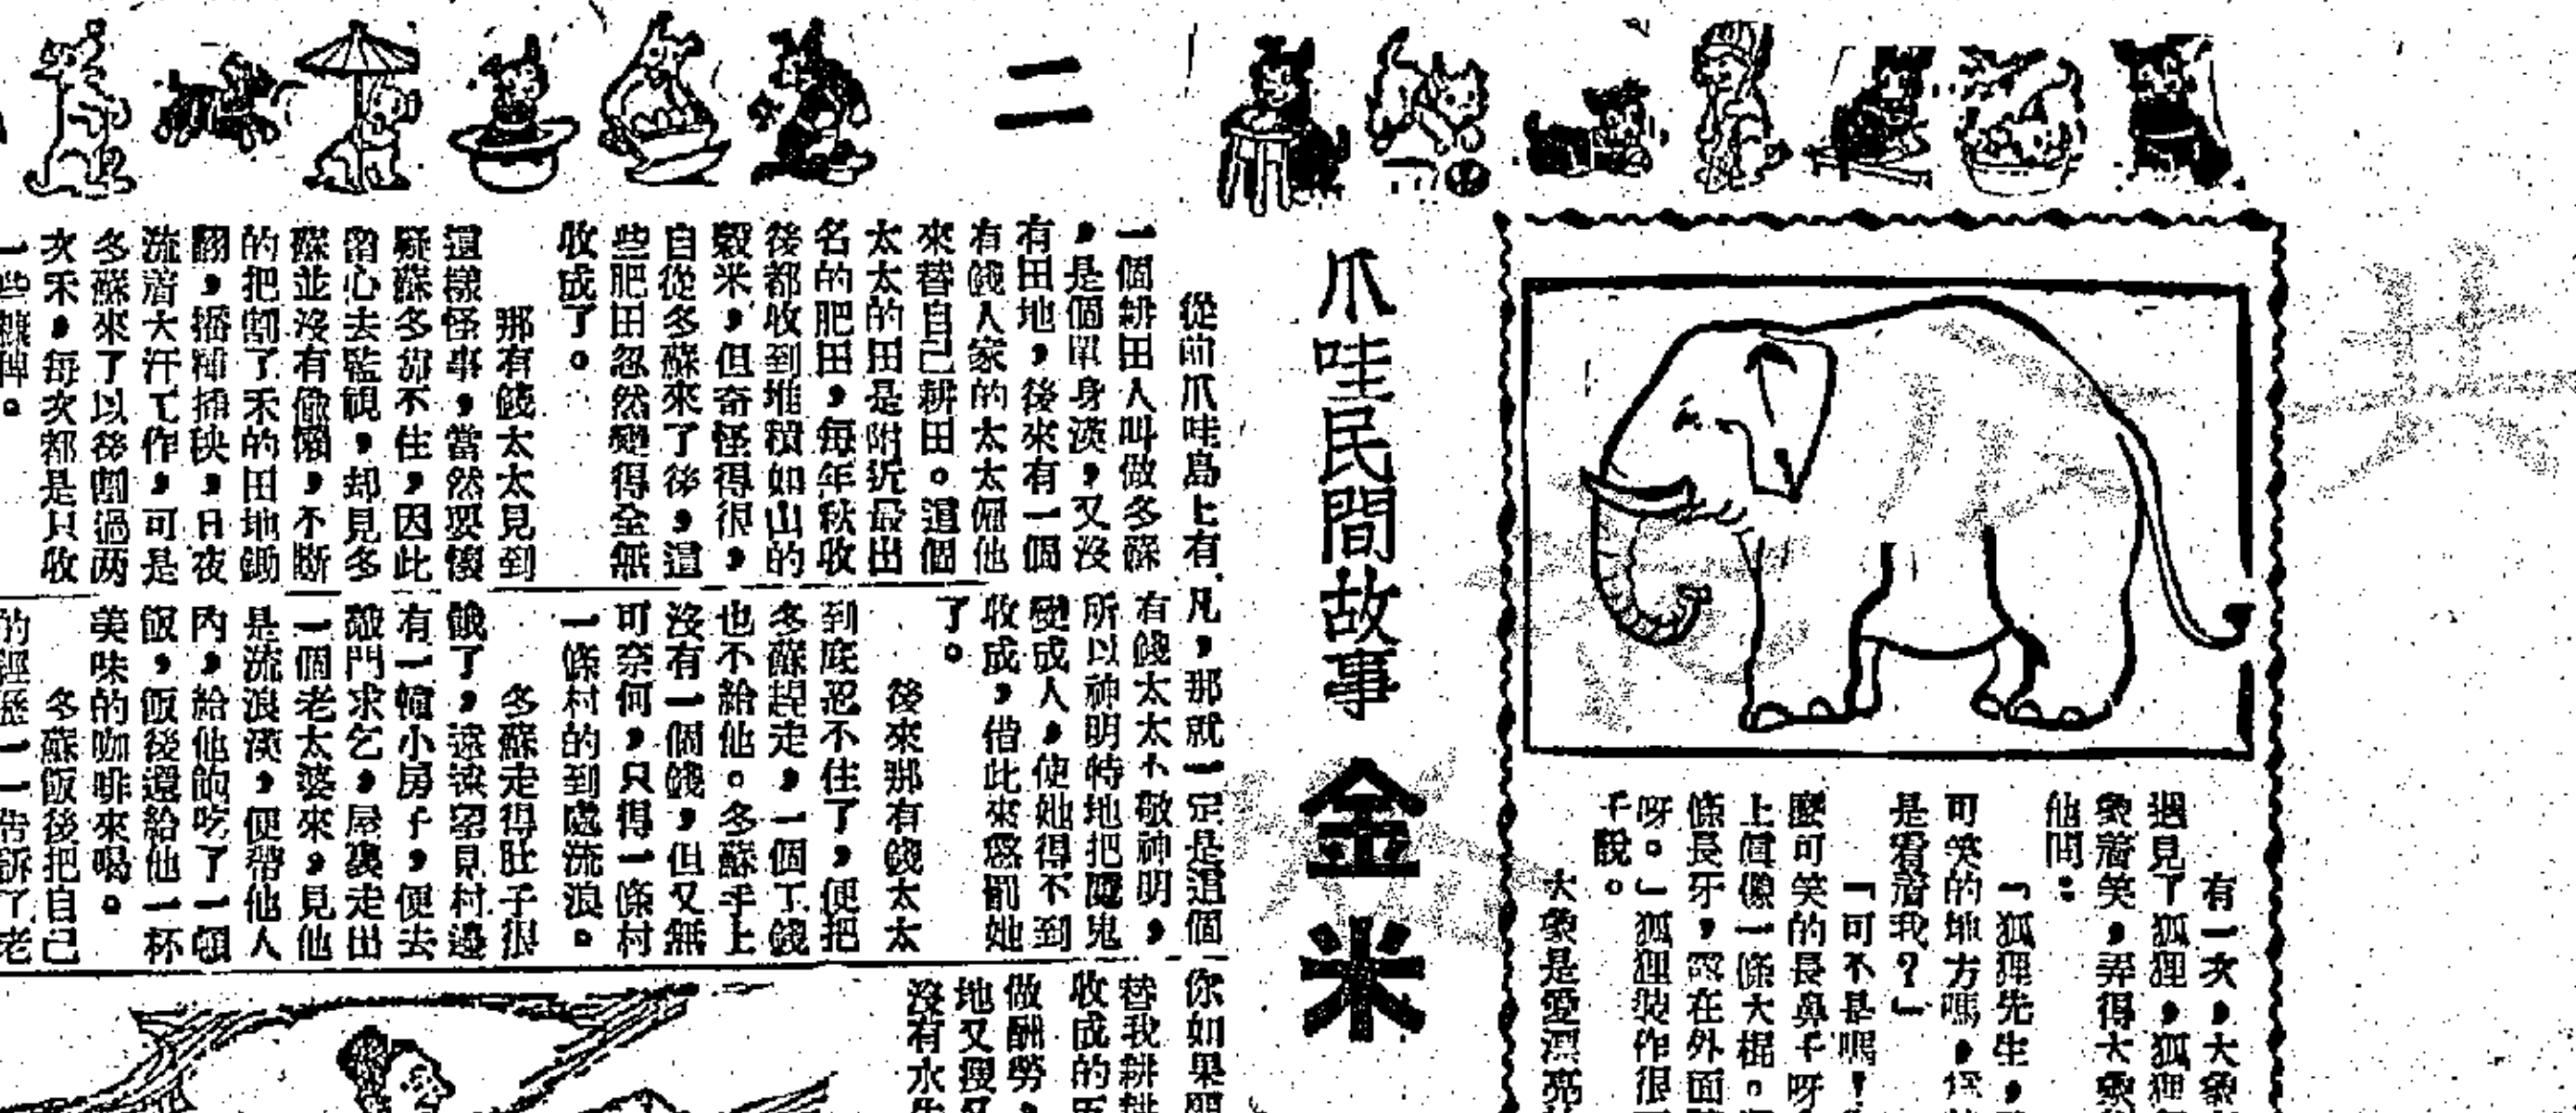 二
有一次，大象
遇見了狐狸，狐狸
象着笑，弄得大象
他問：
「狐狸先生，
可笑的地方嗎，
是看着我？」
「可不是嗎！
麼可笑的長鼻子呀
上眞像一條大棍。
條長牙，露在外面
呀。」狐狸裝作很
子說。
大象是愛漂亮
爪哇民間故事
金米
從前爪哇島上有
一個耕田人叫做多蘇
，是個單身漢，又沒
有田地，後來有一個
有錢人家的太太僱他
來替自己耕田。這個
太太的田是附近最出
名的肥田，每年秋收
後都收到堆積如山的
穀米，但奇怪得很，
自從多蘇來了後，這
些肥田忽然變得全無
收成了。
那有錢太太見到
這樣怪事，當然要懷
疑蘇多靠不住，因此
留心去監視，却見多
蘇並沒有偸懶，不斷
的把割了禾的田地鋤
翻，播種插秧，日夜
流着大汗工作，可是
多蘇來了以後割過两
次禾，每次都是只收
一些糠稗。
凡，那就一定是這個
有錢太太不敬神明，
所以神明特地把魔鬼
變成人，使她得不到
收成，借此來懲罰她
了。
後來那有錢太太
到底忍不住了，便把
多蘇趕走，一個工錢
也不給他。多蘇手上
沒有一個錢，但又無
可奈何，只得一條村
一條村的到處流浪。
多蘇走得肚子很
餓了，遠遠望見村邊
有一幢小房子，便去
敲門求乞，屋裏走出
一個老太婆來，見他
是流浪漢，便帶他入
內，給他飽吃了一頓
飯，飯後還給他一杯
美味的咖啡來喝。
多蘇飯後把自己
的經歷一一告訴了老
你如果願
替我耕耕
收成的五
做酬勞，
地又瘦又
沒有水牛